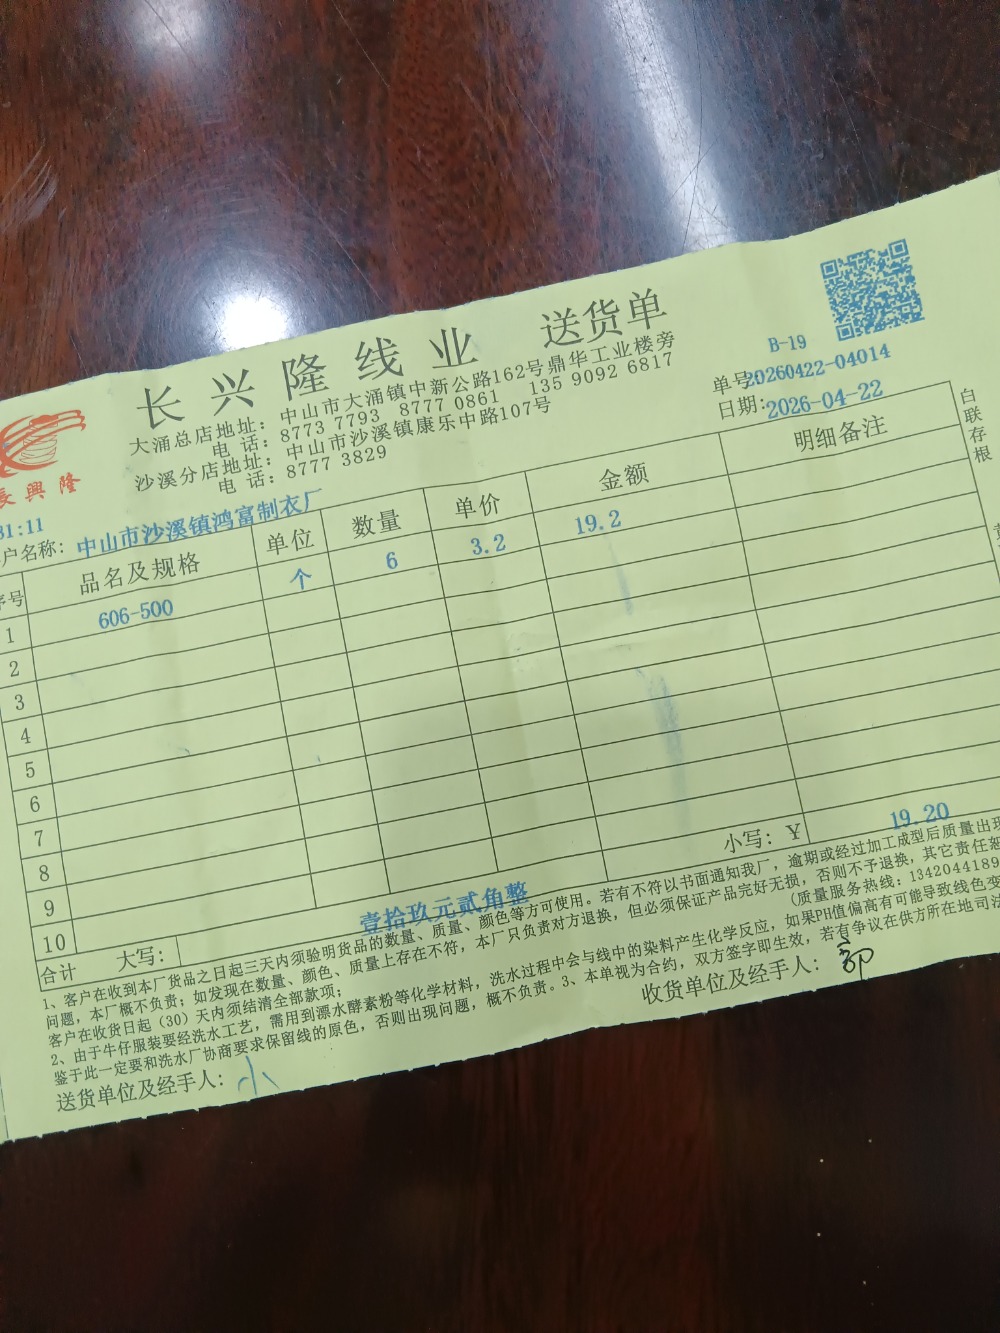 长兴隆线业 送货单
大涌总店地址：中山市大涌镇中新公路162号鼎华工业楼旁
电 话：8773 7793 8777 0861 135 9092 6817
沙溪分店地址：中山市沙溪镇康乐中路107号
电 话：8777 3829
B-19
单号:20260422-04014
日期:2026-04-22
長興隆
31:11
户名称：中山市沙溪镇鸿富制衣厂
序号 品名及规格 单位 数量 单价 金额 明细备注
1 606-500 个 6 3.2 19.2
2
3
4
5
6
7
8
9
10
合计 大写： 壹拾玖元贰角整 小写：￥ 19.20
1、客户在收到本厂货品之日起三天内须验明货品的数量、质量、颜色等方可使用。若有不符以书面通知我厂，逾期或经过加工成型后质量出现
问题，本厂概不负责；如发现在数量、颜色、质量上存在不符，本厂只负责对方退换，但必须保证产品完好无损，否则不予退换，其它责任
客户在收货日起（30）天内须结清全部款项；
(质量服务热线：134204418
2、由于牛仔服装要经洗水工艺，需用到漂水酵素粉等化学材料，洗水过程中会与线中的染料产生化学反应，如果PH值偏高有可能导致线色变
鉴于此一定要和洗水厂协商要求保留线的原色，否则出现问题，概不负责。3、本单视为合约，双方签字即生效，若有争议在供方所在地司法
送货单位及经手人：小
收货单位及经手人：
白联存根